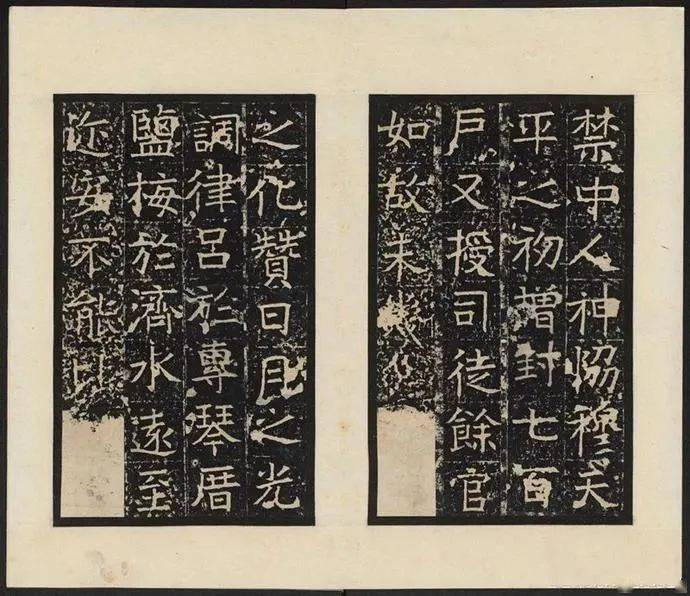 禁中人神協穆天
平之初增封七百
戶又授司徒餘官
如故未幾
之化贊日月之光
調律呂於專琴厝
鹽梅於濟水遠至
迩安不能比